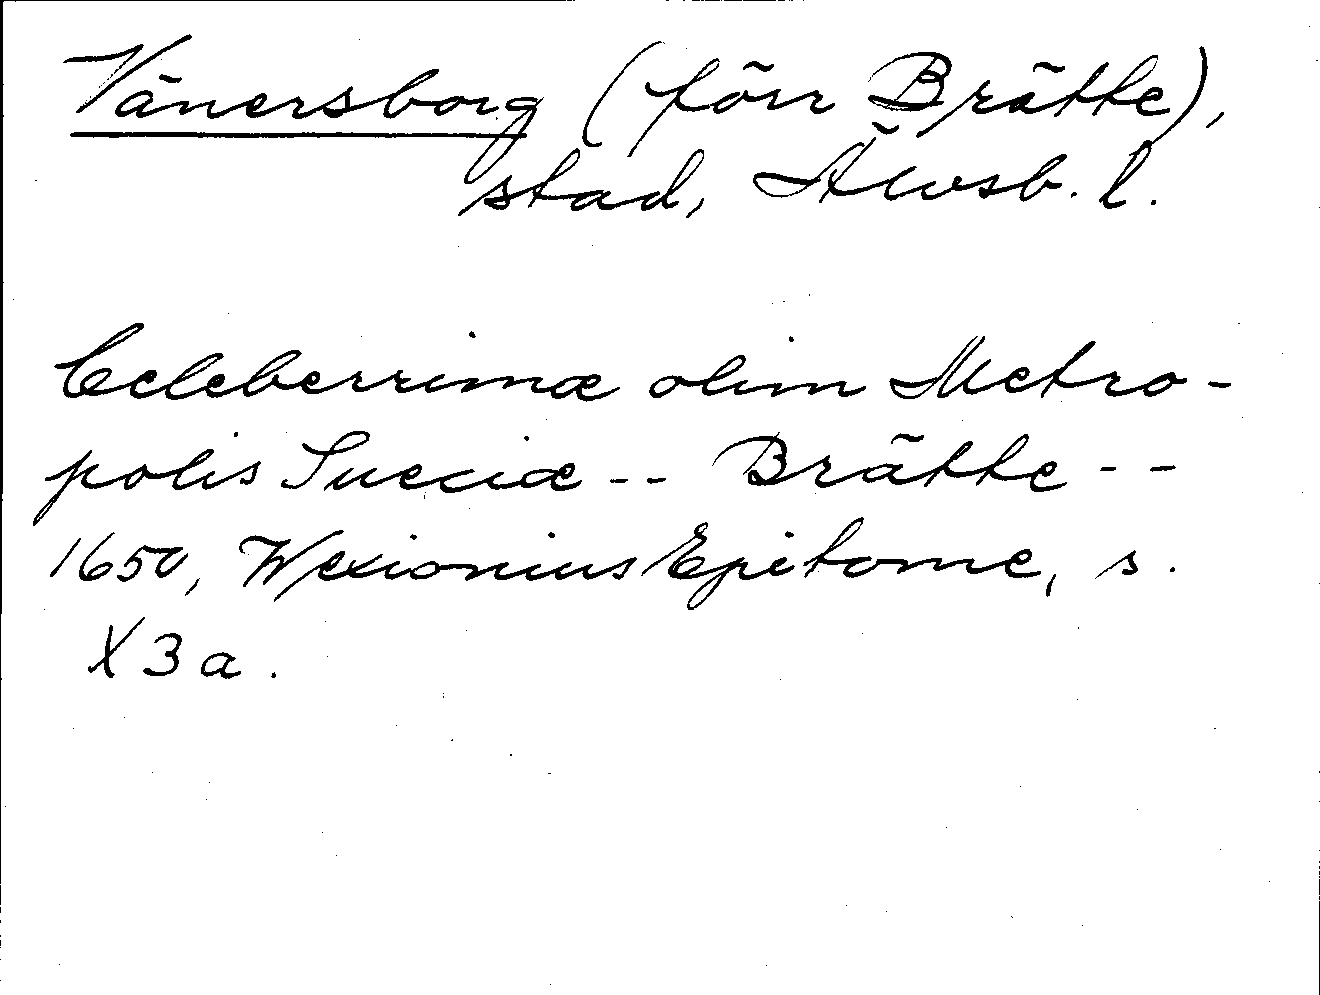 Vänersborg (förr Brätte),
stad, Älvsb. l.
Celeberrimæ olim Metro-
polis Sueciæ -- Brätte --
1650, Wexionius Epitome, s.
X 3 a.